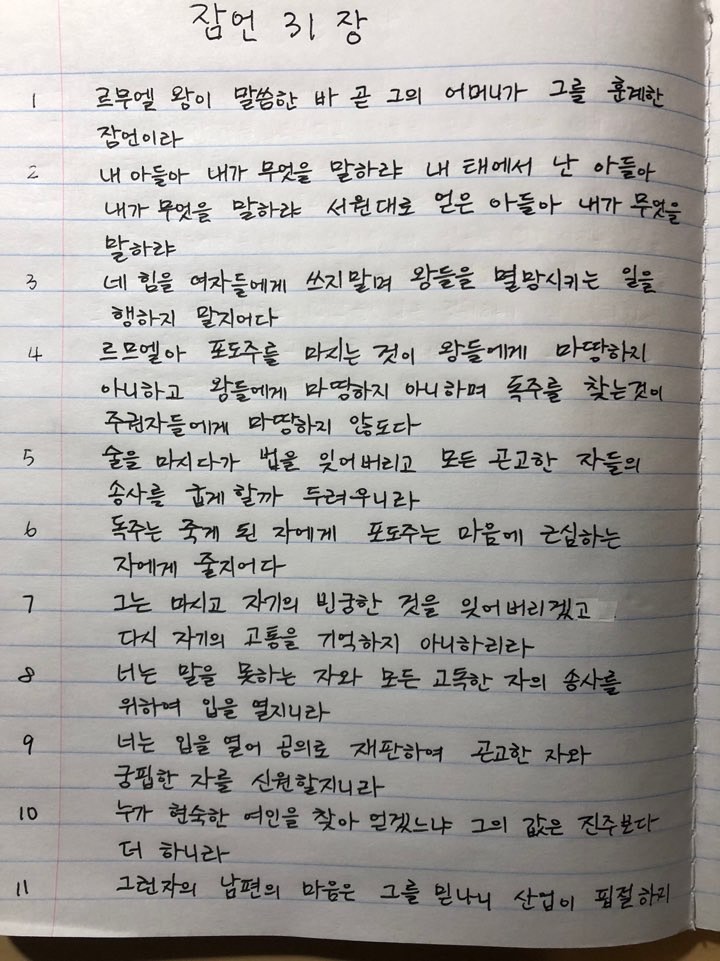 잠언 31 장
1 르무엘 왕이 말씀한 바 곧 그의 어머니가 그를 훈계한
잠언이라
2 내 아들아 내가 무엇을 말하랴 내 태에서 난 아들아
내가 무엇을 말하랴 서원대로 얻은 아들아 내가 무엇을
말하랴
3 네 힘을 여자들에게 쓰지말며 왕들을 멸망시키는 일을
행하지 말지어다
4 르므엘아 포도주를 마시는 것이 왕들에게 마땅하지
아니하고 왕들에게 마땅하지 아니하며 독주를 찾는것이
주권자들에게 마땅하지 않도다
5 술을 마시다가 법을 잊어버리고 모든 곤고한 자들의
송사를 굽게 할까 두려우니라
6 독주는 죽게 된 자에게 포도주는 마음에 근심하는
자에게 줄지어다
7 그는 마시고 자기의 빈궁한 것을 잊어버리겠고
다시 자기의 고통을 기억하지 아니하리라
8 너는 말을 못하는 자와 모든 고독한 자의 송사를
위하여 입을 열지니라
9 너는 입을 열어 공의로 재판하여 곤고한 자와
궁핍한 자를 신원할지니라
10 누가 현숙한 여인을 찾아 얻겠느냐 그의 값은 진주보다
더 하니라
11 그런자의 남편의 마음은 그를 믿나니 산업이 핍절하지